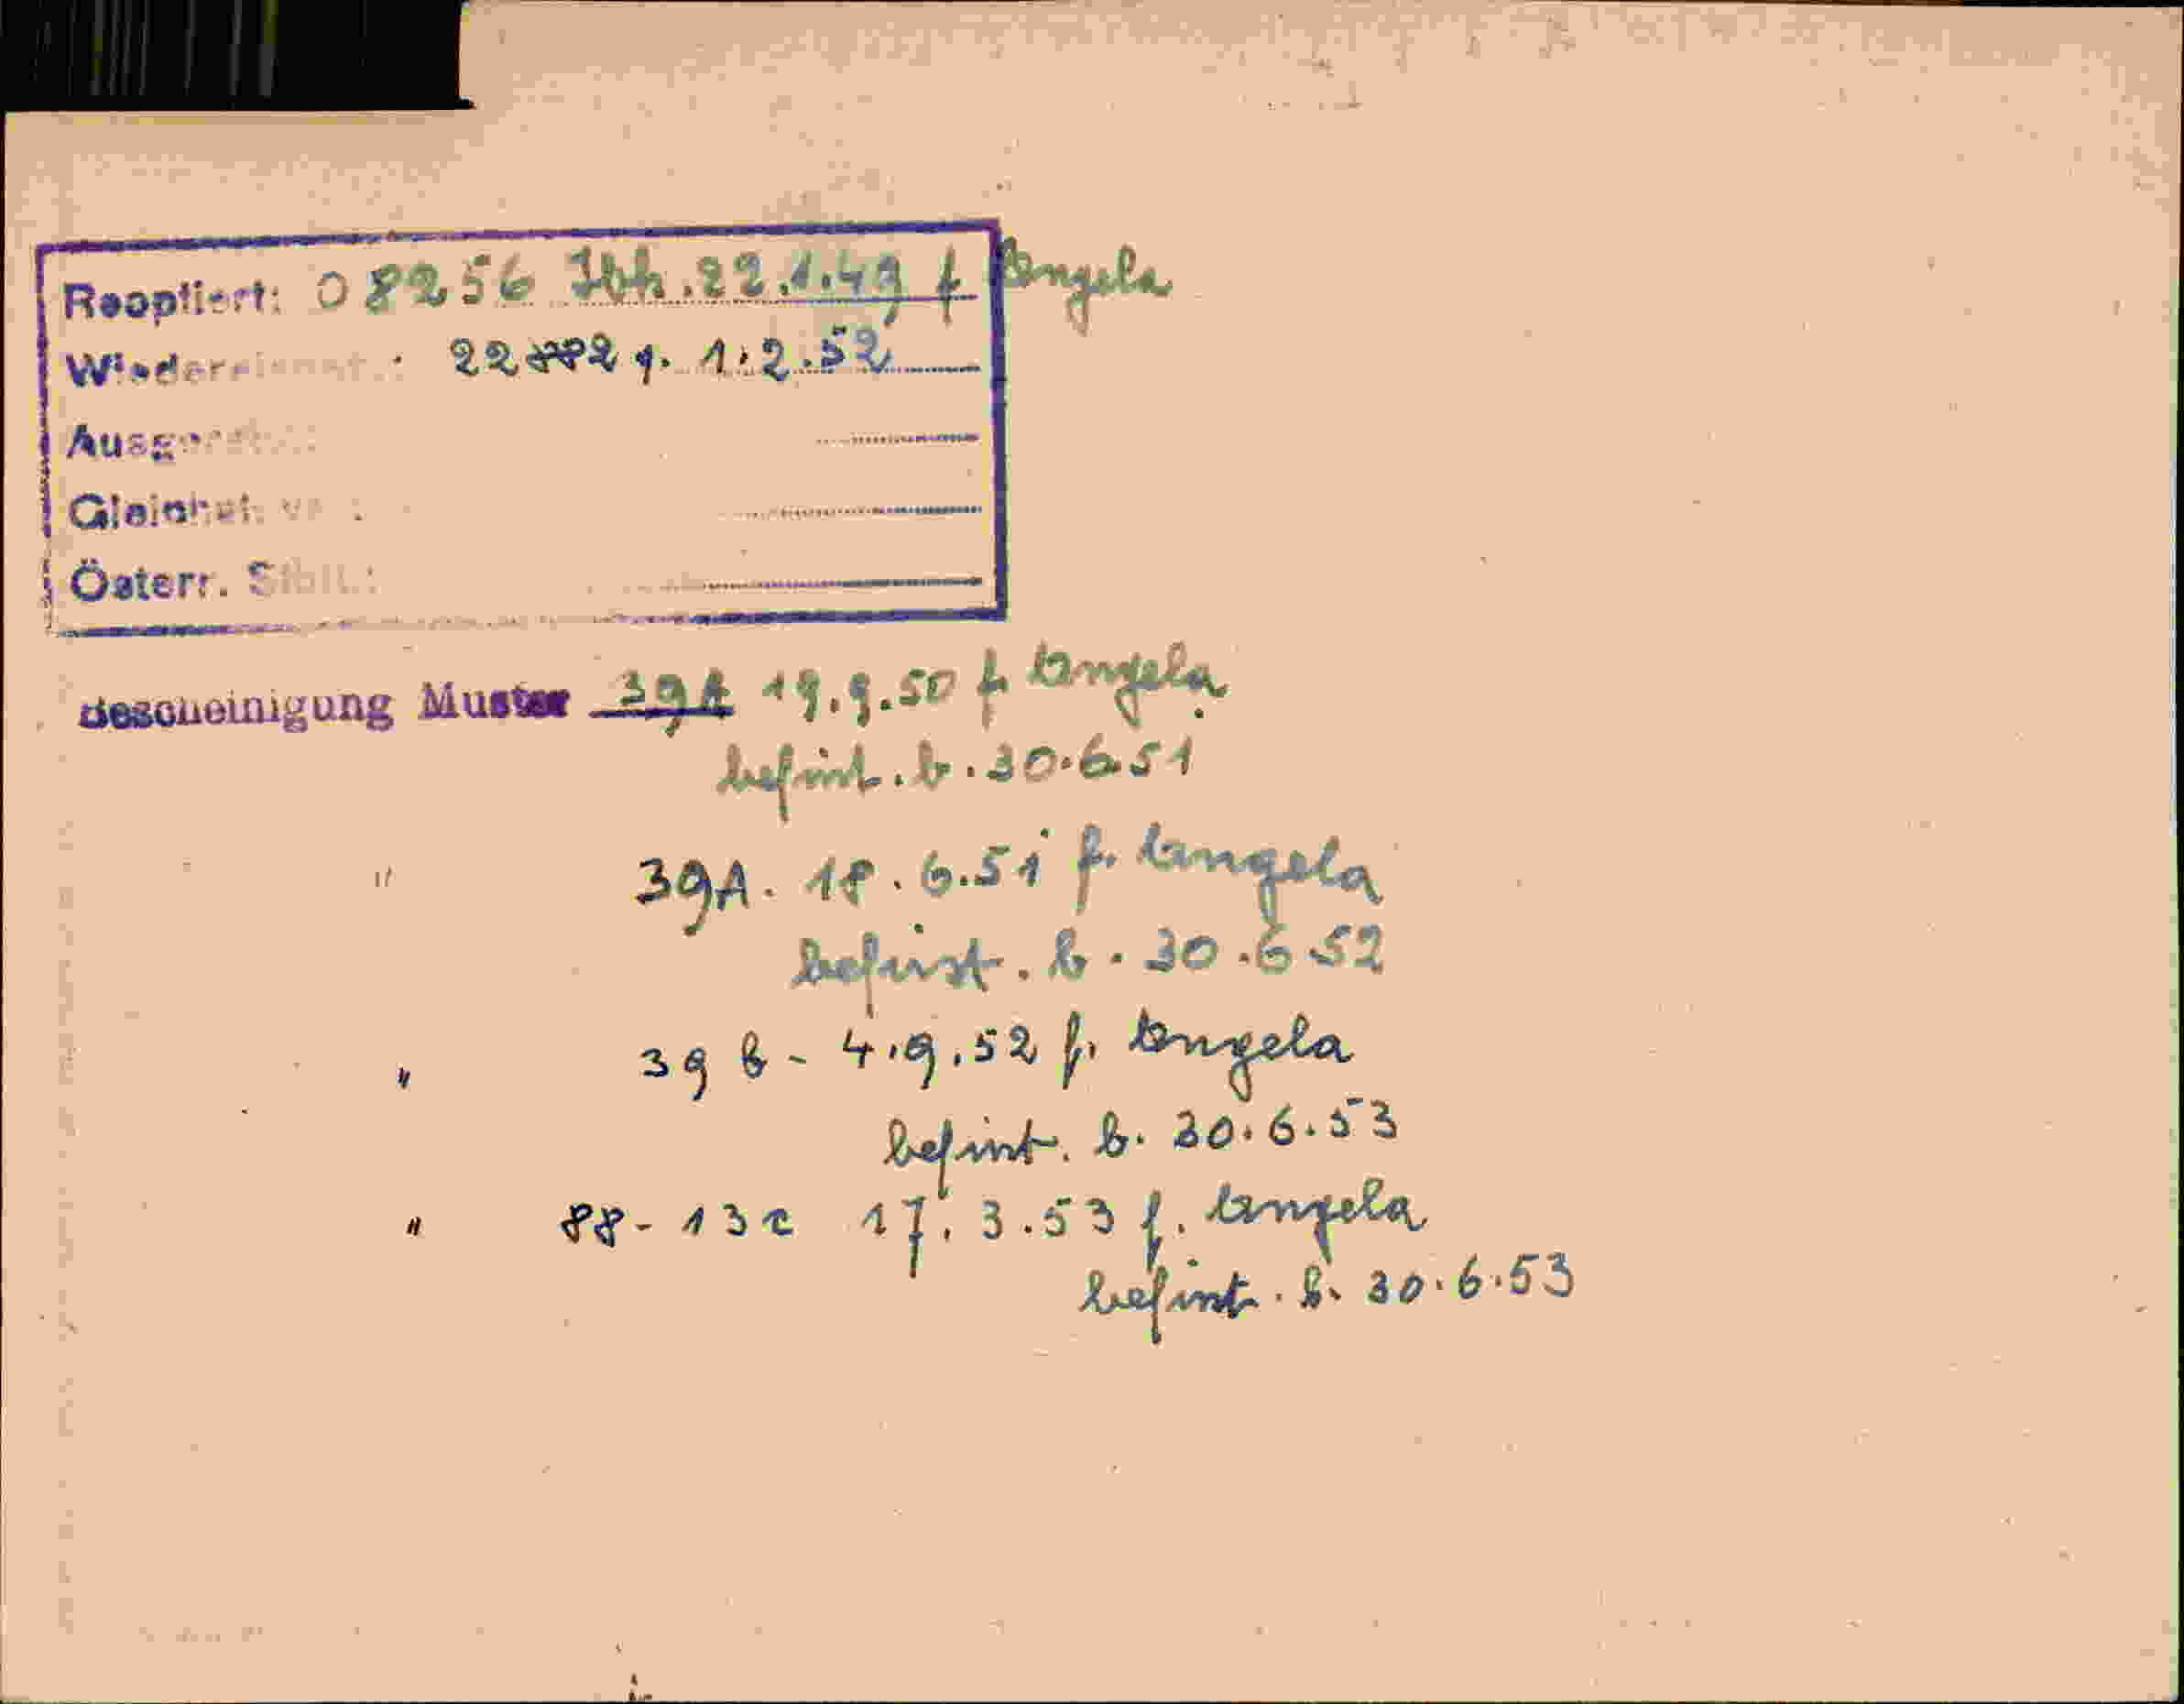 Reoptiert: 08256 Ibk. 22.1.49 f Angela
22 1.2.52
Österr.
Bescheinigung Muster 39A 19.9.50 f Angela
befrist. b. 30.6.51
" 39A. 18.6.51 f. Angela
befrist. b. 30.6.52
" 39 b - 4.9.52 f. Angela
befrist. b. 30.6.53
" 88-13c 17.3.53 f. Angela
befrist. b. 30.6.53